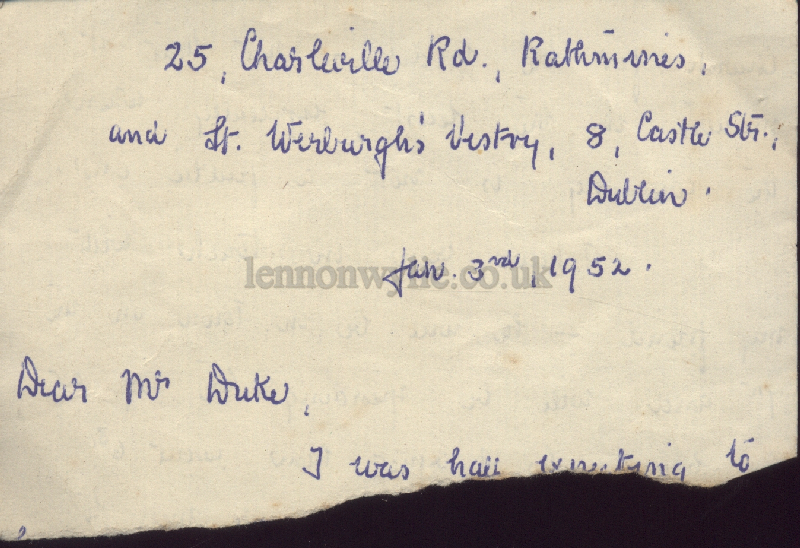 25, Charleville Rd., Rathmines,
and St. Werburgh's Vestry, 8, Castle Str.,
Dublin.
Jan. 3rd, 1952.
lennonwylie.co.uk
Dear Mr Duke,
I was half expecting to